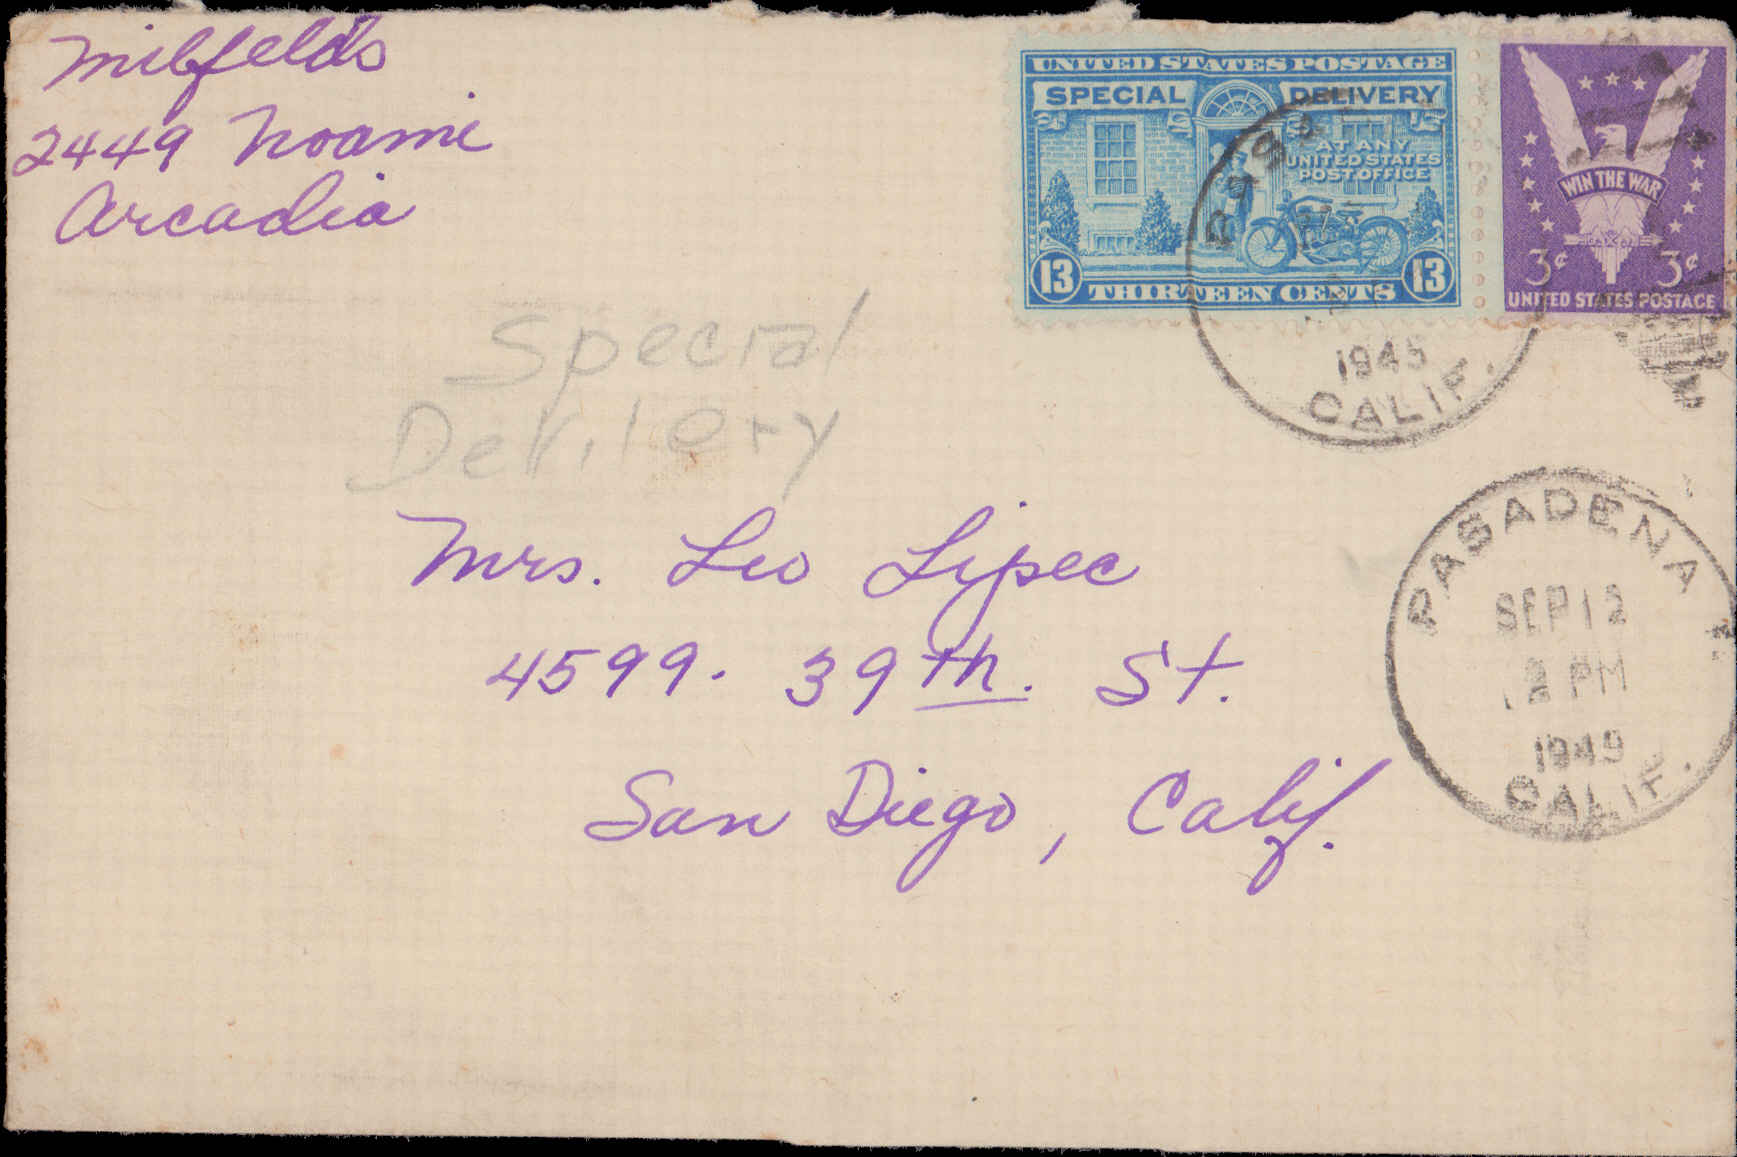 Milfelds
2449 Noami
Arcadia
UNITED STATES POSTAGE
SPECIAL DELIVERY
AT ANY
UNITED STATES
POST OFFICE
13 THIRTEEN CENTS 13
WIN THE WAR
3¢ 3¢
UNITED STATES POSTAGE
1945
CALIF.
Special
Delivery
Mrs. Leo Lipec
4599. 39th. St.
San Diego, Calif.
PASADENA
SEP 12
PM
CALIF.